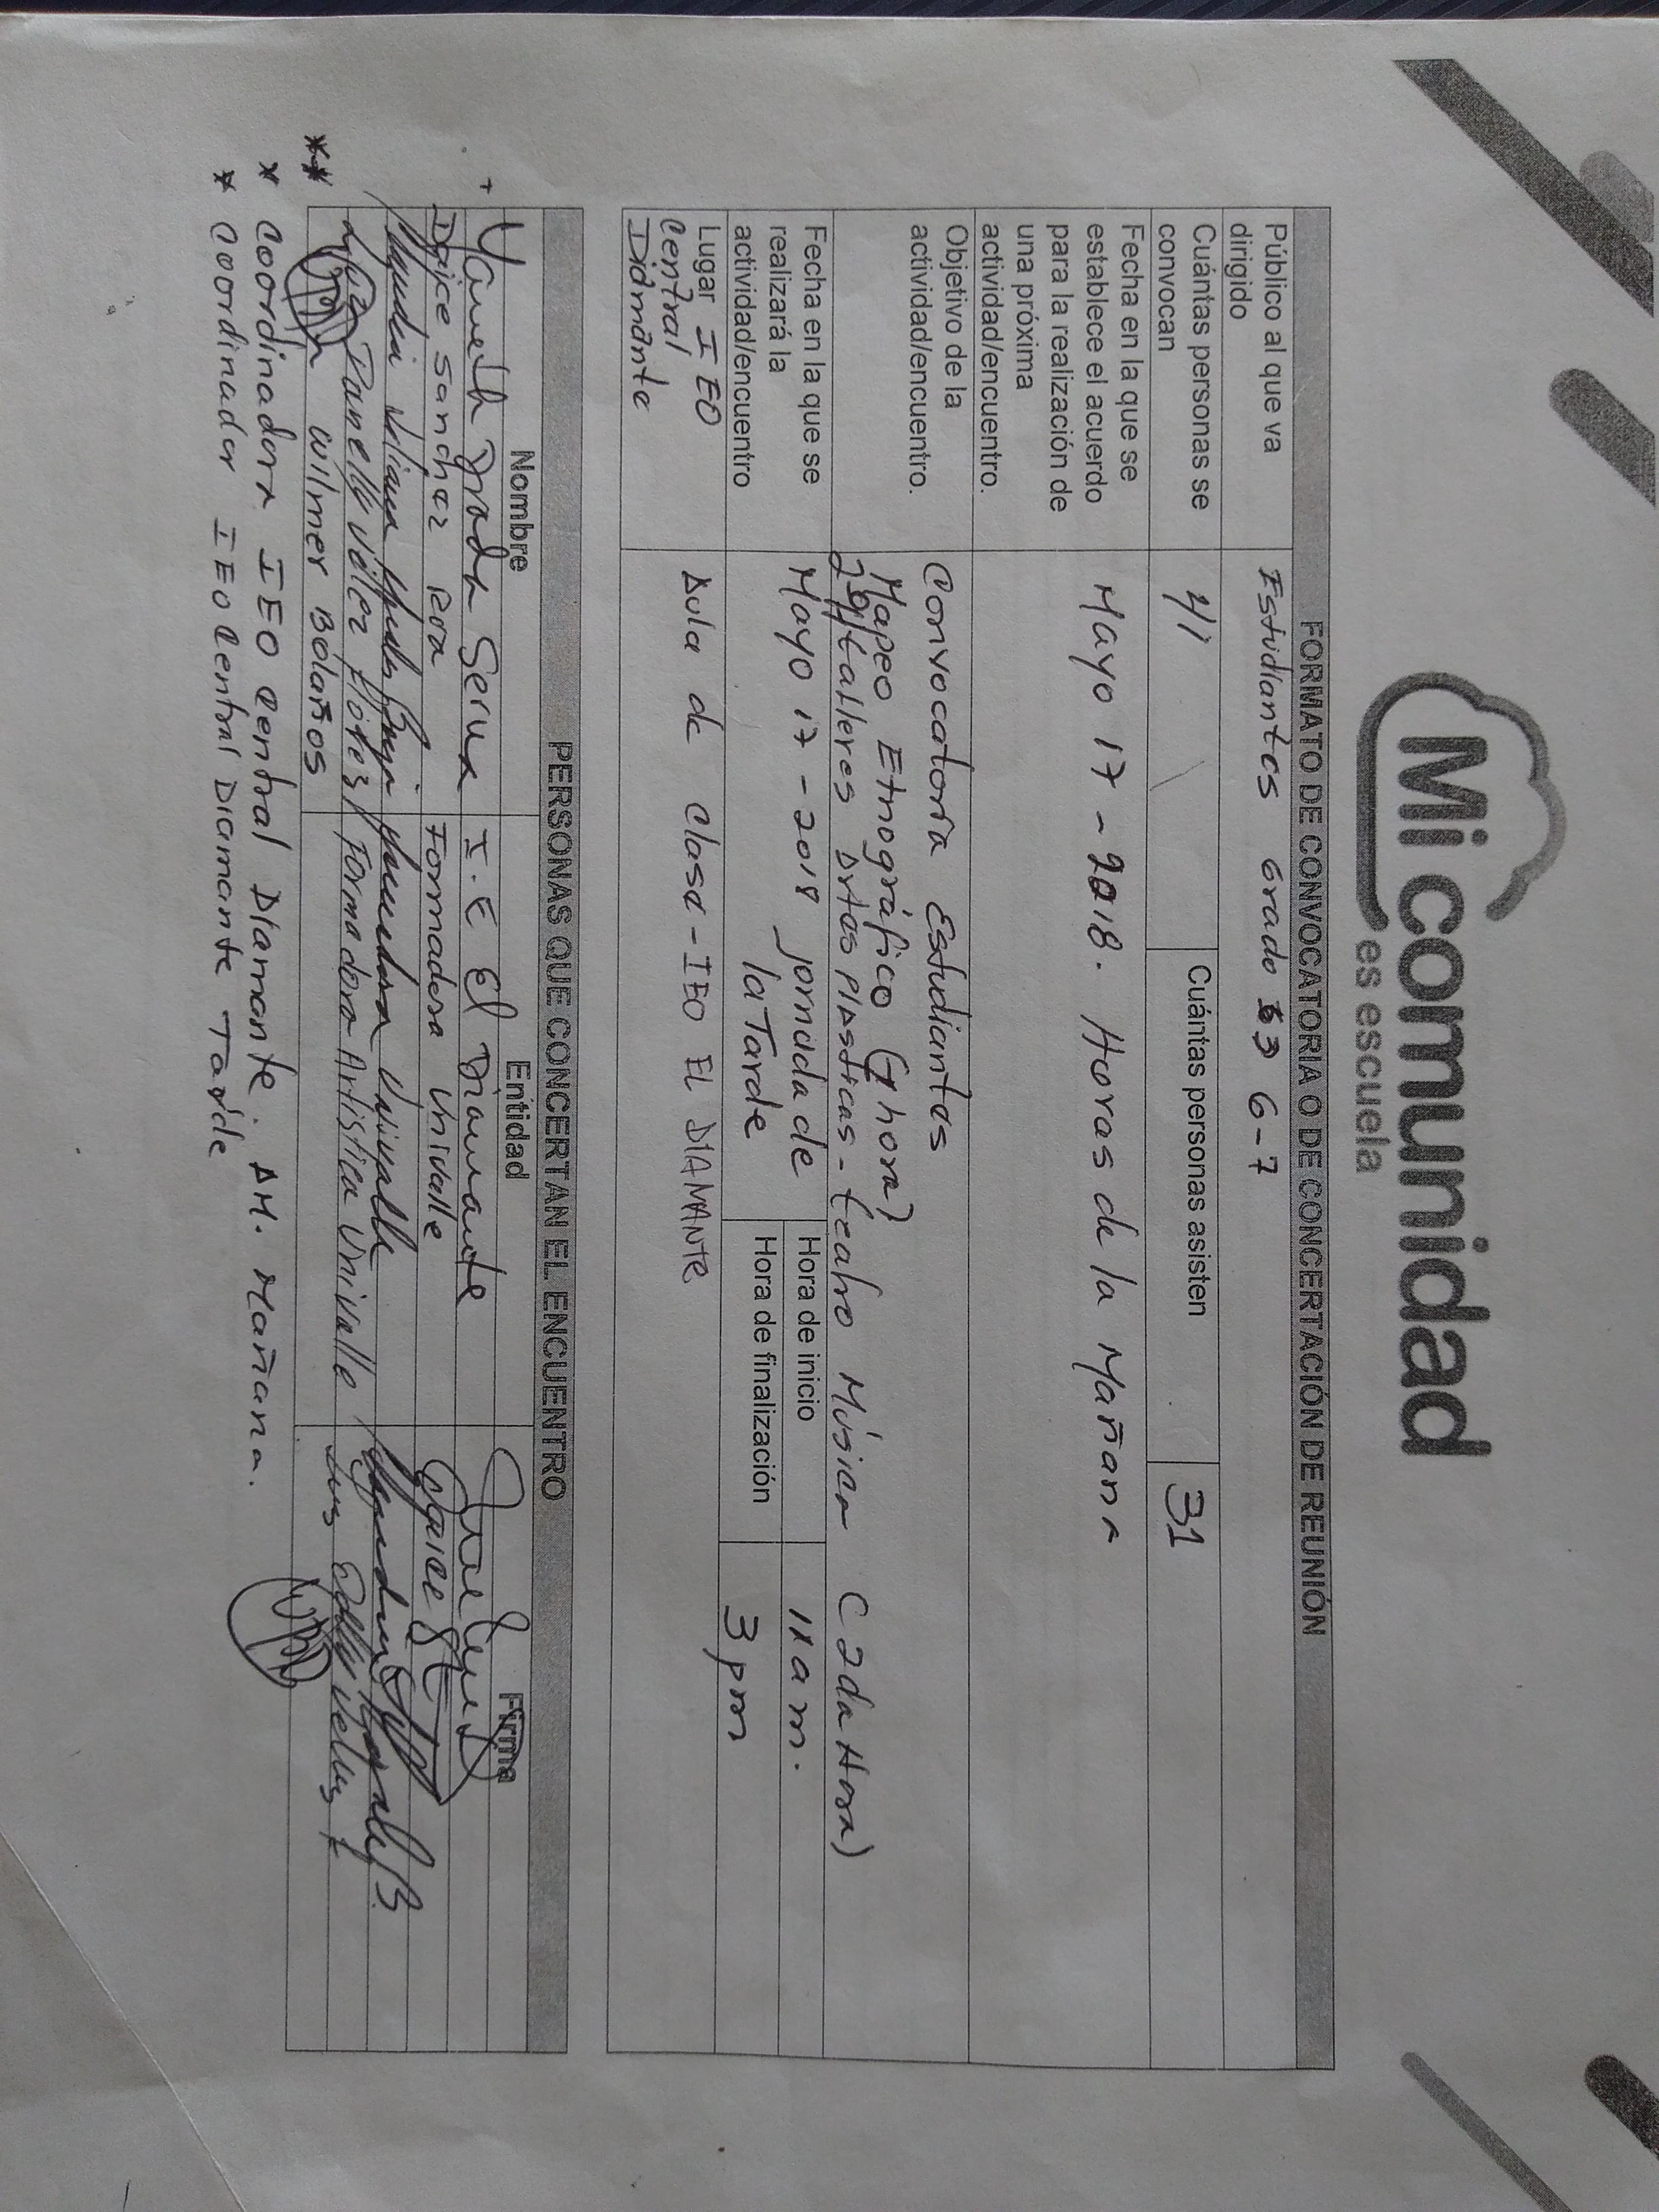 Mi comunidad
es escuela
FORMATO DE CONVOCATORIA O DE CONCERTACIÓN DE REUNIÓN
Público al que va
dirigido
Estudiantes Grado 6-7
Cuántas personas se
convocan
41
Cuántas personas asisten
31
Fecha en la que se
establece el acuerdo
para la realización de
una próxima
actividad/encuentro.
Mayo 17 - 2018. Horas de la Mañana
Objetivo de la
actividad/encuentro.
Convocatoria Estudiantes
Mapeo Etnográfico (1 hora)
talleres Artes Plásticas - teatro Música (2da Hora)
Fecha en la que se
realizará la
actividad/encuentro
Mayo 17 - 2018 jornada de
la Tarde
Hora de inicio
a m.
Hora de finalización
3 pm
Lugar IEO
Central
Diamante
Aula de clase - IEO EL DIAMANTE
PERSONAS QUE CONCERTAN EL ENCUENTRO
Nombre
Entidad
Firma
Yaneth Prada Serna
I.E El Diamante
Daice Sanchez Roa
Formadora Univalle
Claudia Juliana Morales
Formadora Univalle
Luz Danelly Velez Florez
Formadora Artistica Univalle
** Wilmer Bolaños
WBD
* Coordinadora IEO Central Diamante. AM. Mañana.
* Coordinador IEO Central Diamante Tarde